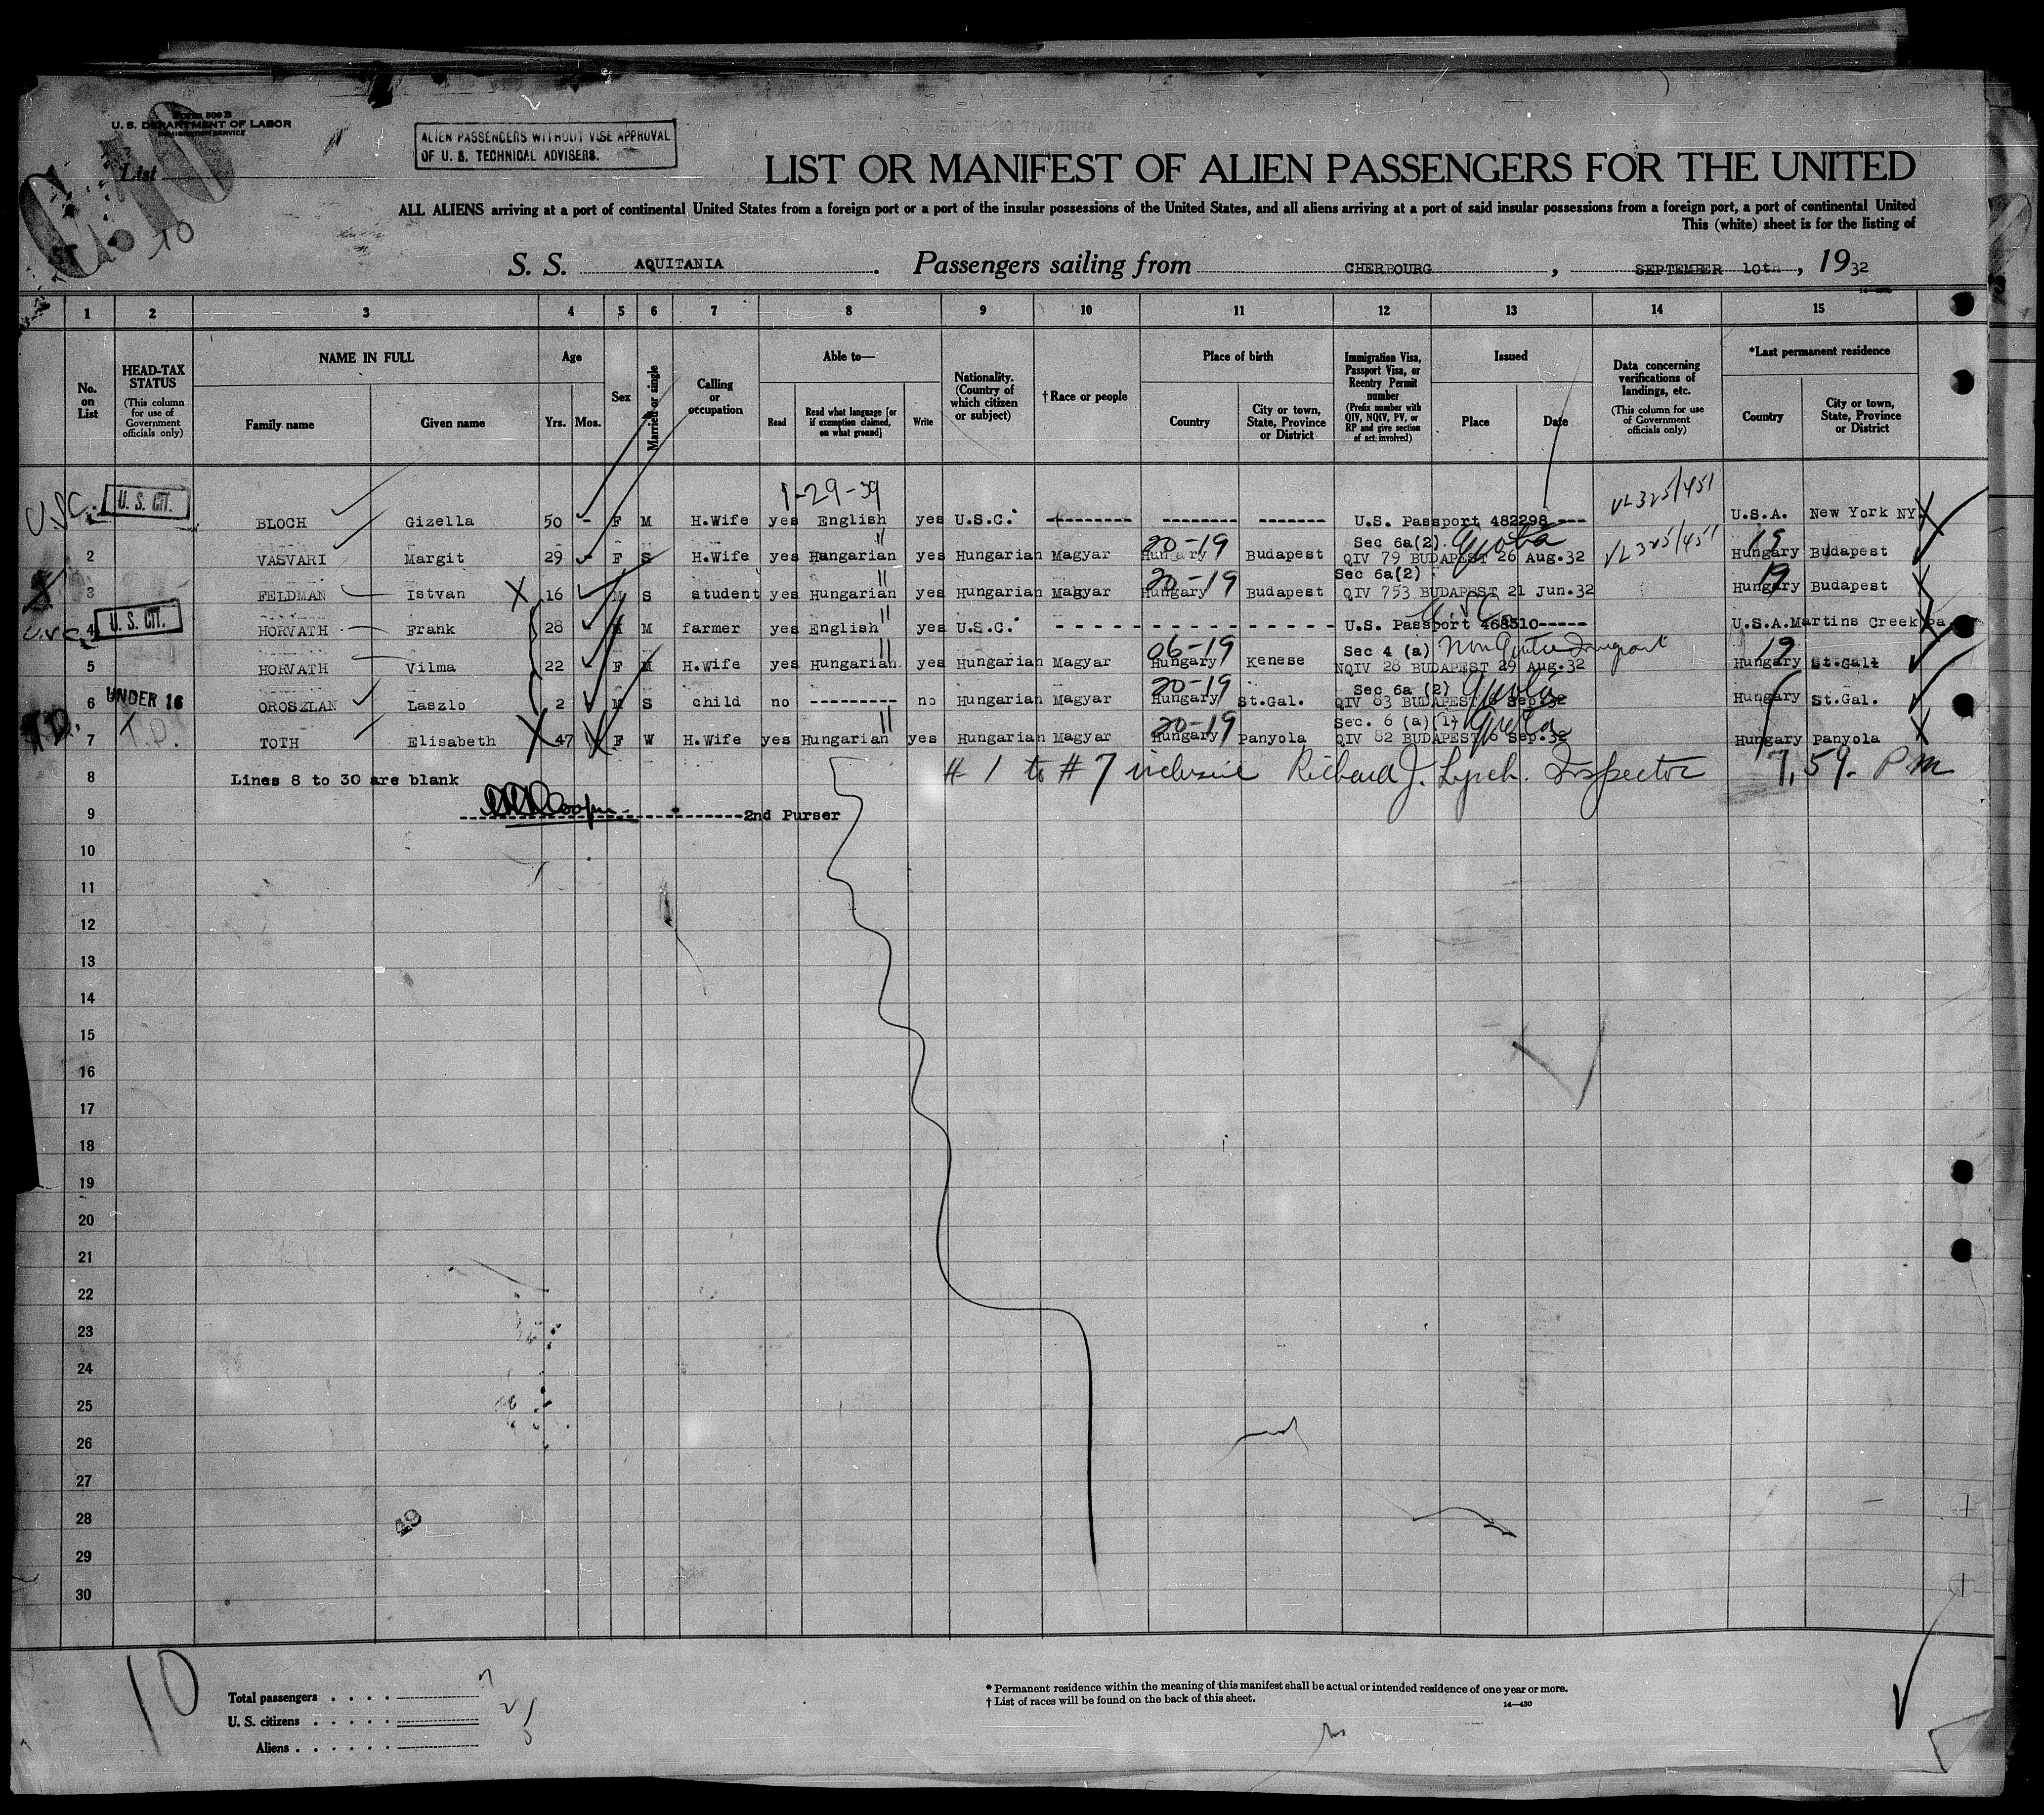 Form 500 B
U. S. DEPARTMENT OF LABOR
IMMIGRATION SERVICE
ALIEN PASSENGERS WITHOUT VISE APPROVAL
OF U. S. TECHNICAL ADVISERS.
List
10
LIST OR MANIFEST OF ALIEN PASSENGERS FOR THE UNITED
ALL ALIENS arriving at a port of continental United States from a foreign port or a port of the insular possessions of the United States, and all aliens arriving at a port of said insular possessions from a foreign port, a port of continental United
This (white) sheet is for the listing of
S. S. AQUITANIA. Passengers sailing from CHERBOURG, SEPTEMBER 10th, 1932
1 2 3 4 5 6 7 8 9 10 11 12 13 14 15
No. on List
HEAD-TAX STATUS (This column for use of Government officials only)
NAME IN FULL
Family name
Given name
Age
Yrs. Mos.
Sex
Married or single
Calling or occupation
Able to—
Read
Read what language [or if exemption claimed, on what ground]
Write
Nationality. (Country of which citizen or subject)
† Race or people
Place of birth
Country
City or town, State, Province or District
Immigration Visa, Passport Visa, or Reentry Permit number (Prefix number with QIV, NQIV, PV, or RP and give section of act involved)
Issued
Place
Date
Data concerning verifications of landings, etc. (This column for use of Government officials only)
*Last permanent residence
Country
City or town, State, Province or District
1-29-39
VL325/451
U.S.C. U. S. CIT. BLOCH Gizella 50 - F M H.Wife yes English yes U.S.C. U.S. Passport 482298 U.S.A. New York NY
Sec 6a(2) Quota VL325/451
20-19 19
2 VASVARI Margit 29 - F S H.Wife yes Hungarian yes Hungarian Magyar Hungary Budapest QIV 79 BUDAPEST 26 Aug.32 Hungary Budapest
Sec 6a(2)
20-19 19
3 FELDMAN Istvan X 16 M S student yes Hungarian yes Hungarian Magyar Hungary Budapest QIV 753 BUDAPEST 21 Jun.32 Hungary Budapest
U.S.C. 4 U. S. CIT. HORVATH Frank 28 M M farmer yes English yes U.S.C. U.S. Passport 468510 U.S.A. Martins Creek Pa
Sec 4 (a) Non Quota Immigrant
06-19 19
5 HORVATH Vilma 22 F M H.Wife yes Hungarian yes Hungarian Magyar Hungary Kenese NQIV 28 BUDAPEST 29 Aug.32 Hungary St.Gal.
Sec 6a (2) Quota
20-19
6 UNDER 16 OROSZLAN Laszlo 2 M S child no no Hungarian Magyar Hungary St.Gal. QIV 83 BUDAPEST 6 Sep.32 Hungary St.Gal.
Sec. 6 (a)(1) Quota
20-19
7 T.D. T.D. TOTH Elisabeth X 47 F W H.Wife yes Hungarian yes Hungarian Magyar Hungary Panyola QIV 82 BUDAPEST 6 Sep.32 Hungary Panyola
8 Lines 8 to 30 are blank # 1 to # 7 inclusive Richard J. Lynch. Inspector 7,59. P.m
9 2nd Purser
10
11
12
13
14
15
16
17
18
19
20
21
22
23
24
25
26
27
28
49
29
30
10
Total passengers 7
U. S. citizens 2
Aliens 5
* Permanent residence within the meaning of this manifest shall be actual or intended residence of one year or more.
† List of races will be found on the back of this sheet.
14—430